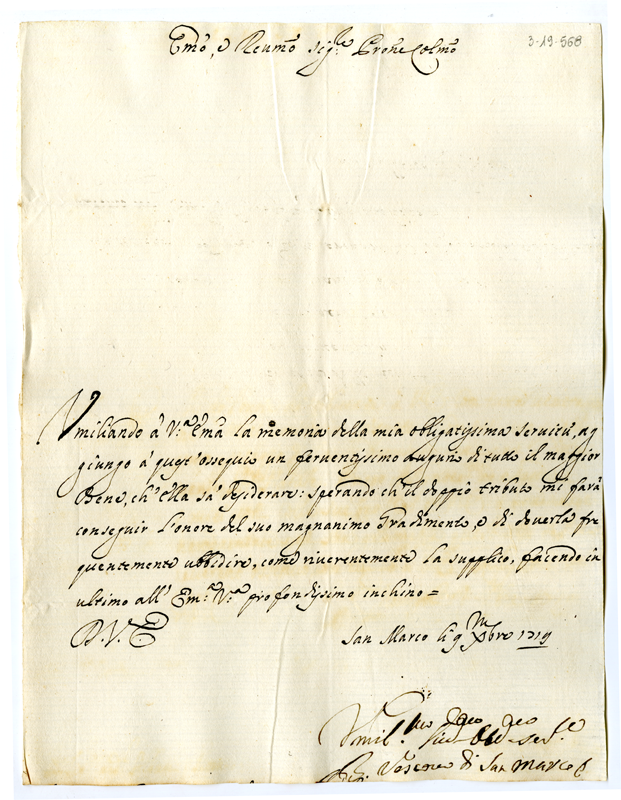 3-19-568
Emo, e Reumo sig.re Prone Colmo
Vmiliando à V.a Ema la memoria della mia obligatissima seruitù, ag
giungo à quest'ossequio un feruentissimo augurio di tutto il maggior
Bene, ch'Ella sa desiderare: sperando ch'il doppio tributo mi farà
conseguir l'onore del suo magnanimo Gradimento, e di douerla fre
quentemente ubbidire, come riuerentemente la supplico, facendo in
ultimo all' Em.a V.a profondissimo inchino =
D. V. E.
San Marco li 9 Xbre 1719
Vmil.mo Diuo Obb Ser.e
Vescouo di San Marco